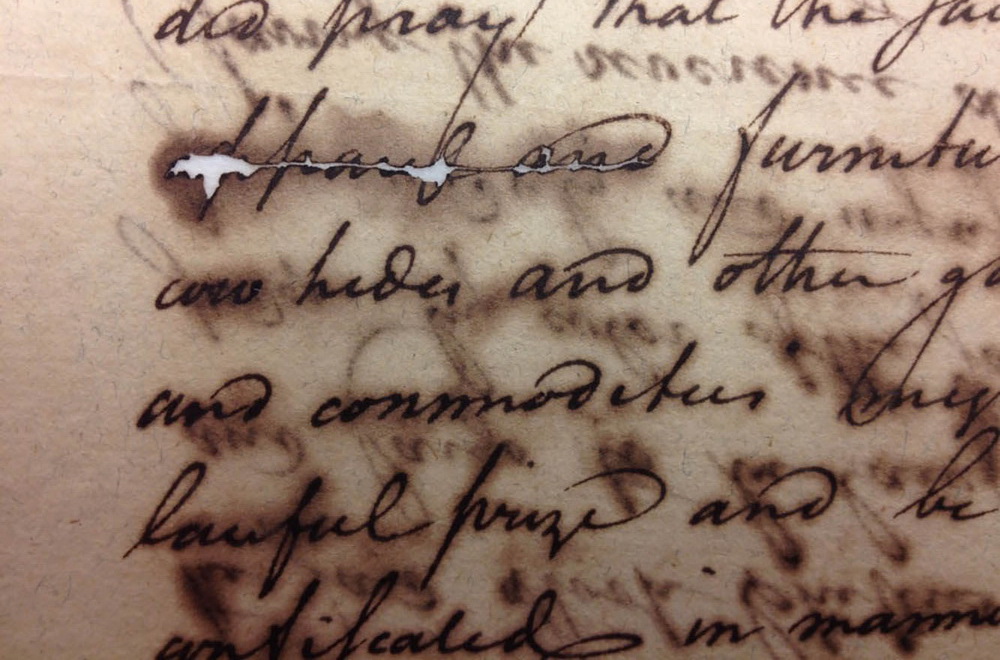 did pray that the
apparel and furnitu
cow hides and other
and commodities
lawful prize and be
confiscated in manne